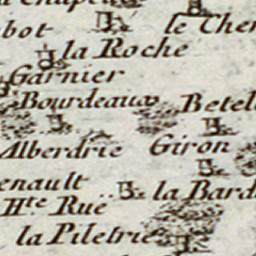 le Cher
bot
la Roche
Garnier
Bourdeaux
Betel
Alberdrie
Giron
enault
la Bard
H.te Rue
la Piletrie